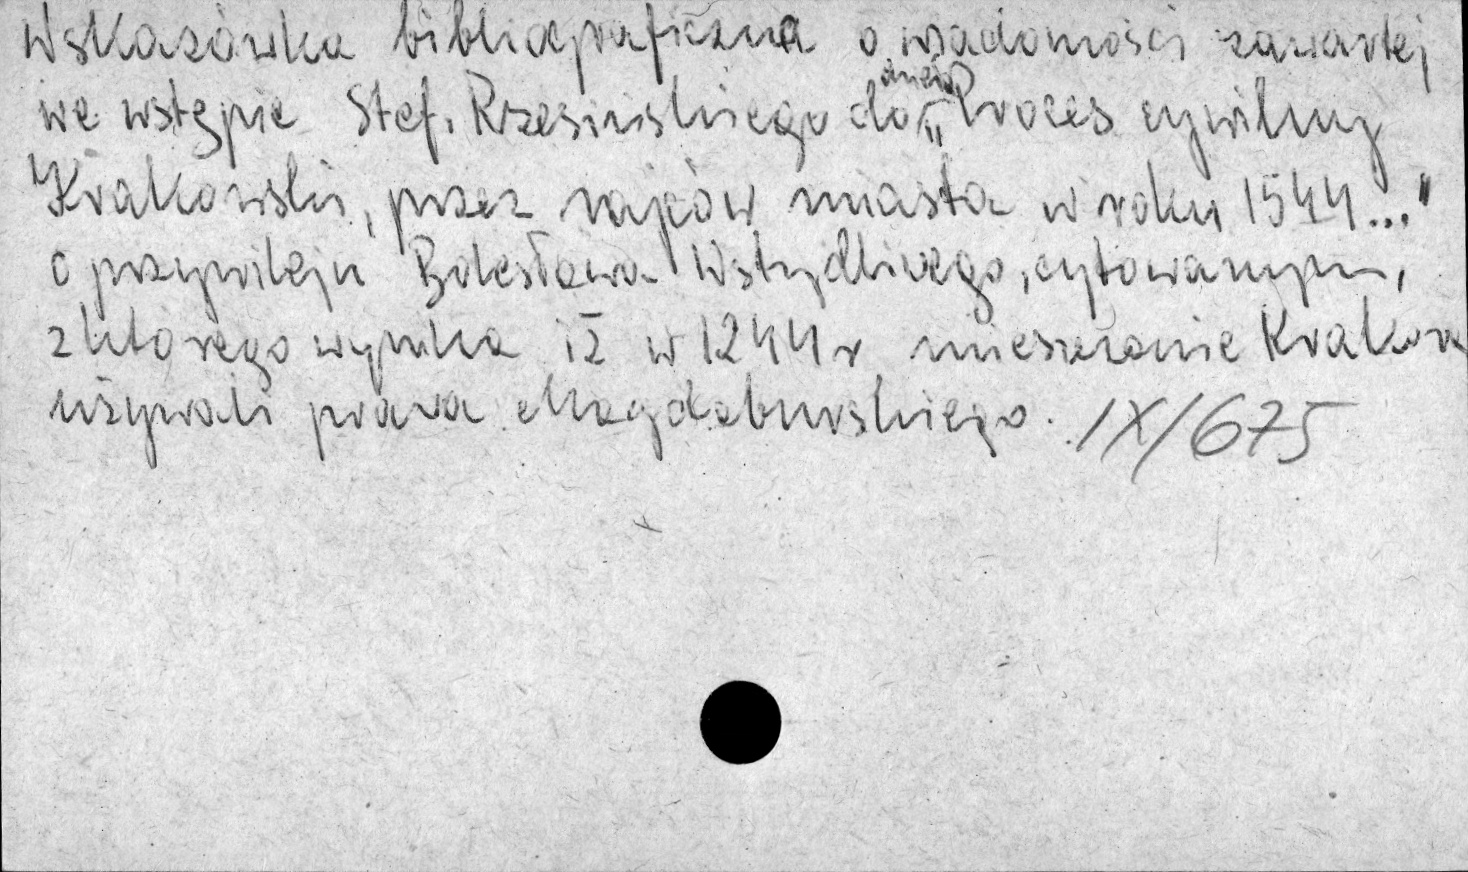 Wskazówka bibliograficzna o wiadomości zawartej
we wstępie Stef. Rzesińskiego do dzieła „Proces cywilny
Krakowski, przez rajców miasta w roku 1544..."
o przywileju Bolesława Wstydliwego, cytowanym,
z którego wynika iż w 1244 r mieszczanie Krakowa
używali prawa Magdeburskiego. IX/675